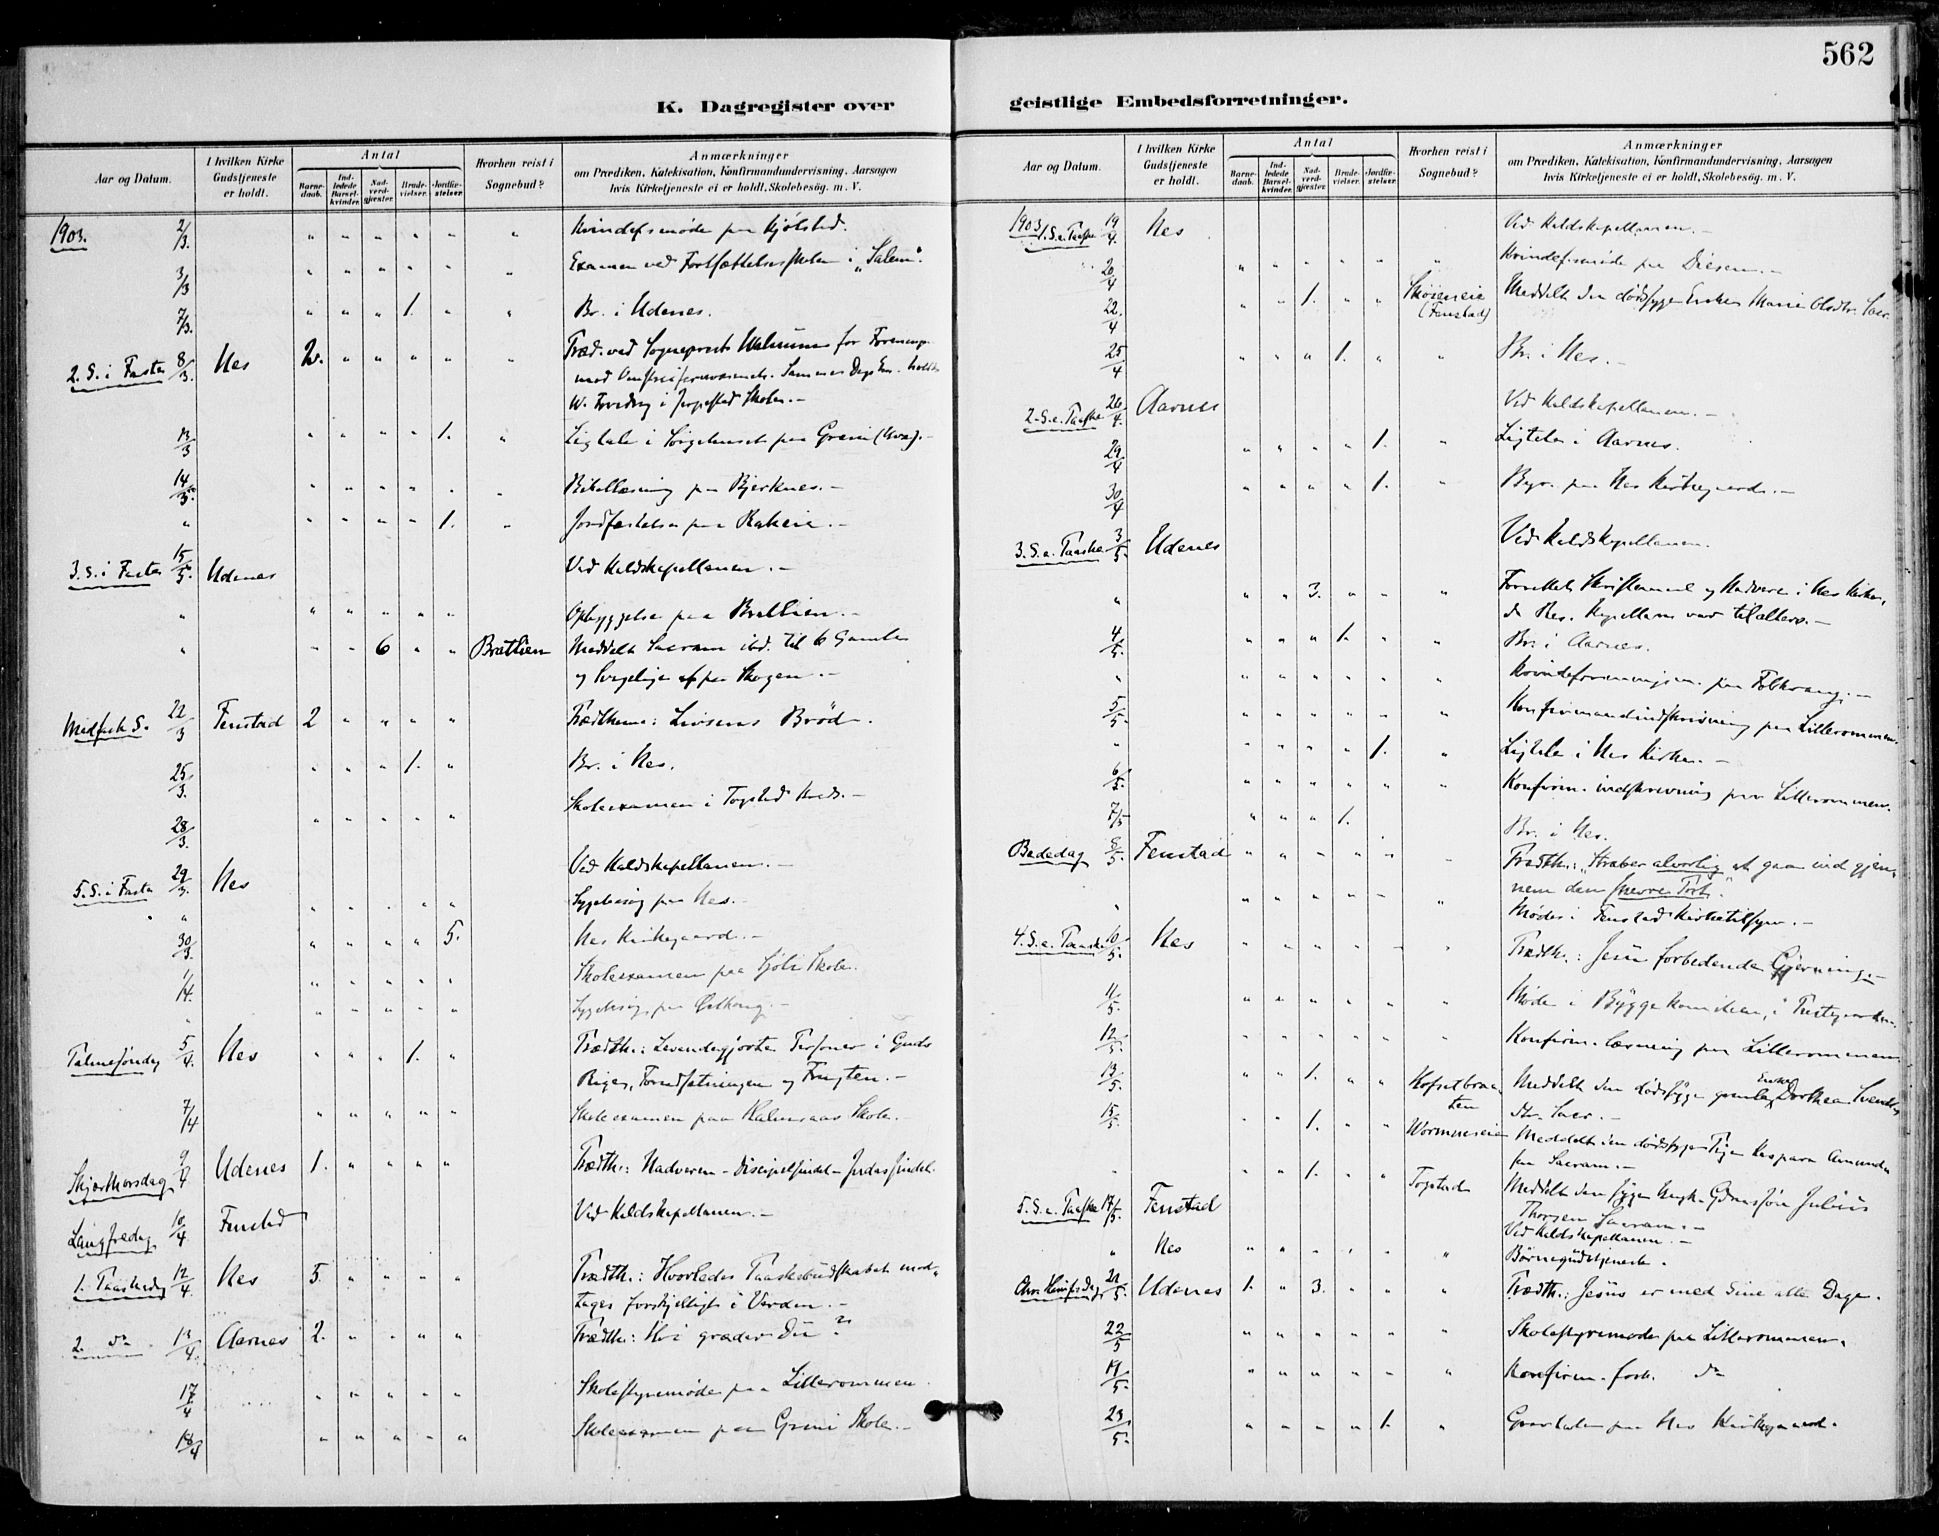 562
K. Dagregister over
Aar og Datum.
I hvilken Kirke Gudstjeneste er holdt.
Antal
Barnedaab.
Indledede Barselkvinder.
Nadverdgjester.
Brudevielser.
Jordfæstelser.
Hvorhen reist i Sognebud?
Anmærkninger
om Prædiken, Katekisation, Konfirmandundervisning, Aarsagen
hvis Kirketjeneste ei er holdt, Skolebesøg. m. V.
1903. 2/3. " " " " " " Kvindefsmøde paa Kjølstad.
3/3 " " " " " " Examen ved Fortsættelsesskolen i "Salem".
7/3. " " " 1. " " Br. i Udenes.
2. S. i Faste 8/3. Nes 2. " " " " " Præd. ved Sogneprest for
i Skolen.-
13/3 " " " " 1. " Ligtale i Sørgehuset paa Greni
14/3. " " " " " " Bibellæsning paa Bjerknes.-
" " " " " 1. " Jordfæstelse paa Rakeie.-
3. S. i Faste 15/3. Udenes Ved Kaldskapellanen.-
" " " " " " Opbyggelse paa Bratlien.-
" " " 6 " " Bratlien Meddelt Sacram. ibd. til 6 Gamle
og Svagelige paa Skogen.-
Midfaste S. 22/3 Fenstad 2 " " " " Prædthema: Livsens Brød.
25/3. " " " 1. " Br. i Nes.
28/3. " " " " " Skoleexamen i Togstad Kreds.-
5. S. i Faste 29/3. Nes Ved Kaldskapellanen.-
" " " " " " Sygebesøg paa Nes.-
30/3. " " " " 5. Nes Kirkegaard.-
1/4. " " " " " Skoleexamen paa Skole.
" " " " " " Sygebesøg paa
Palmesøndag 5/4. Nes " " " 1. " Prædth.: Levendegjorte Personer i Guds
Riges, Forudsætningen og Frugten.-
7/4 " " " " " Skoleexamen paa Skole.-
Skjærthorsdag 9/4 Udenes 1. " " " " Prædth.: Nadveren - Discipelsindet - Judassindet.
Langfredag 10/4 Fenstad Ved Kaldskapellanen.-
1. Paaskedag 12/4 Nes 5. " " " " Prædth.: Hvorledes Paaskebudskabet mod-
tages forskjelligt i Verden.-
2. do 13/4. Aarnes 2. " " " " Prædth.: Hvi græder Du?
17/4 " " " " " Skolestyremøde paa Lillerommen.
18/4 " " " " " Skoleexamen paa Greni Skole.-
geistlige Embedsforretninger.
Aar og Datum.
I hvilken Kirke Gudstjeneste er holdt.
Antal
Barnedaab.
Indledede Barselkvinder.
Nadverdgjester.
Brudevielser.
Jordfæstelser.
Hvorhen reist i Sognebud?
Anmærkninger
om Prædiken, Katekisation, Konfirmandundervisning, Aarsagen
hvis Kirketjeneste ei er holdt, Skolebesøg. m. V.
1903 1. S. e. Paaske 19/4. Nes Ved Kaldskapellanen.-
20/4 " " " " " " Kvindefsmøde paa Diesen.-
22/4 " " 1. " " Skøieneie (Fenstad) Meddelt den dødssyge Enke Marie Olsdtr. Sacr.
25/4 " " " 1. " " Br. i Nes.-
2. S. e. Paaske 26/4. Aarnes Ved Kaldskapellanen.-
29/4 " " " " 1. " Ligtale i Aarnes.
30/4 " " " " 1. " Begr. paa Nes Kirkegaard.-
3. S. e. Paaske 3/5. Udenes Ved Kaldskapellanen.
" " " 3. " " " Forrettet Skriftemaal og Nadvere i Nes Kirke,
da Res. Kapellanen var til alters.-
4/5. " " " 1. " " Br. i Aarnes.
" " " " " " " Kvindeforeningen paa Folkvang.-
5/5. " " " " " " Konfirmandindskrivning paa Lillerommen.
" " " " " 1. " Ligtale i Nes Kirke.-
6/5. " " " " " " Konfirm. indskrivning paa Lillerommen.
7/5 " " " 1. Br. i Nes.
Bededag 8/5. Fenstad " " " " " " Prædth.: "Stræber alvorlig at gaa ind gjen-
nem den snevre Port."
" " " " " " " Møde i Fenstad Kirketilsyn.-
4. S. e. Paaske 10/5. Nes " " " " " " Prædth.: Jesu forbedende Gjerning.-
11/5. " " " " " " Møde i Byggekomiteen, i Prestegaarden.
12/5. " " " " " " Konfirm. læsning paa Lillerommen
13/5. " " 1. " " Kofsetbraaten Meddelt den dødssyge gamle Enke Dorthea Svends-
dtr. Sacr.-
15/5. " " 1. " " Wormneseie Meddelt den dødssyge Pige Kaspara Amunds
Sacram.-
" " " 1. " " Togstad Meddelt den syge Ungk. Julius
Thorsen Sacram.-
5. S. e. Paaske 17/5. Fenstad Ved Kaldskapellanen.-
" Nes " " " " " " Børnegudstjeneste.
Chr. Himfs Dag 21/5. Udenes 1. " 3. " " " Prædth.: Jesus er med Sine alle Dage.
22/5 " " " " " " Skolestyremøde paa Lillerommen.
19/5. " " " " " " Konfirm. forb. do
23/5. " " " " 1. " Gravtale paa Nes Kirkegaard.